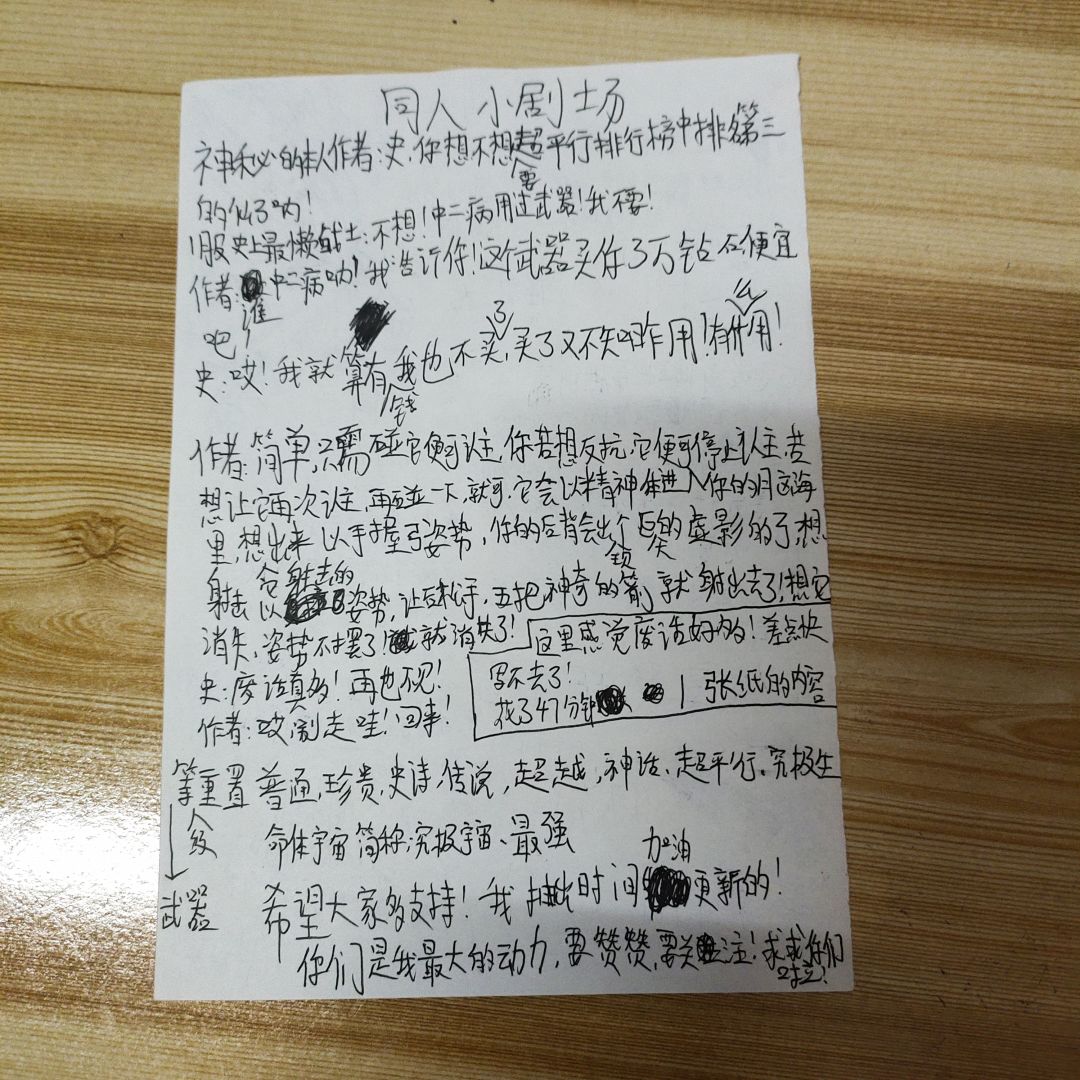 同人小剧场
神秘的本人作者:史,你想不想要超平行排行榜中排第三
的似了呐!
1服史上最懒战士:不想!中二病用过武器!我不要!
作者:谁中二病呐!我告讠斤你!这个武器买你3万钻石,便宜
吧!
史:哎!我就算有钱我也不买了,买了又不知咋用!有什么用!
作者:简单,只需碰它便可认主,你若想反抗,它便可停止认主,若
想让它再次认主,再碰一下,就可.它会以精神体进入你的脑海
里,想出来以手握弓姿势,你的后背会出个巨大的虚影的了,想
射击以会射击的姿势,让后松手,五把神奇的箭就射出去了!想它
消失,姿势不摆了!就消失了!
这里感觉废话好多的!差点快
写不去了!
花了47分钟 1张纸的内容
史:废话真多!再也不见!
作者:哎,别走哇!回来!
武器等级重置 普通,珍贵,史诗,传说,超越,神话,超平行,究极生
命体宇宙简称:究极宇宙、最强
希望大家多支持!我抽出时间加油更新的!
你们是我最大的动力,要赞赞,要关注!求求你们